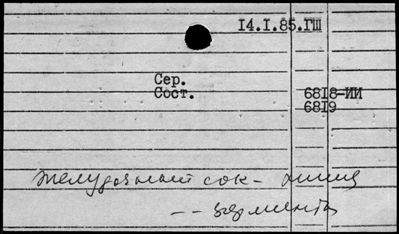 14.I.85.ГШ
Сер.
Сост. 6818-ИИ
6819
Желудочный сок - химия
-- ферменты